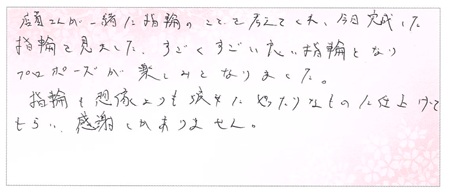 店員さんが一緒に指輪のことで考えてくれ、今日完成した
指輪を見ました。すごくすごい良い指輪となり
プロポーズが楽しみとなりました。
指輪も想像よりも彼女にぴったりなものに仕上げて
もらい、感謝しかありません。